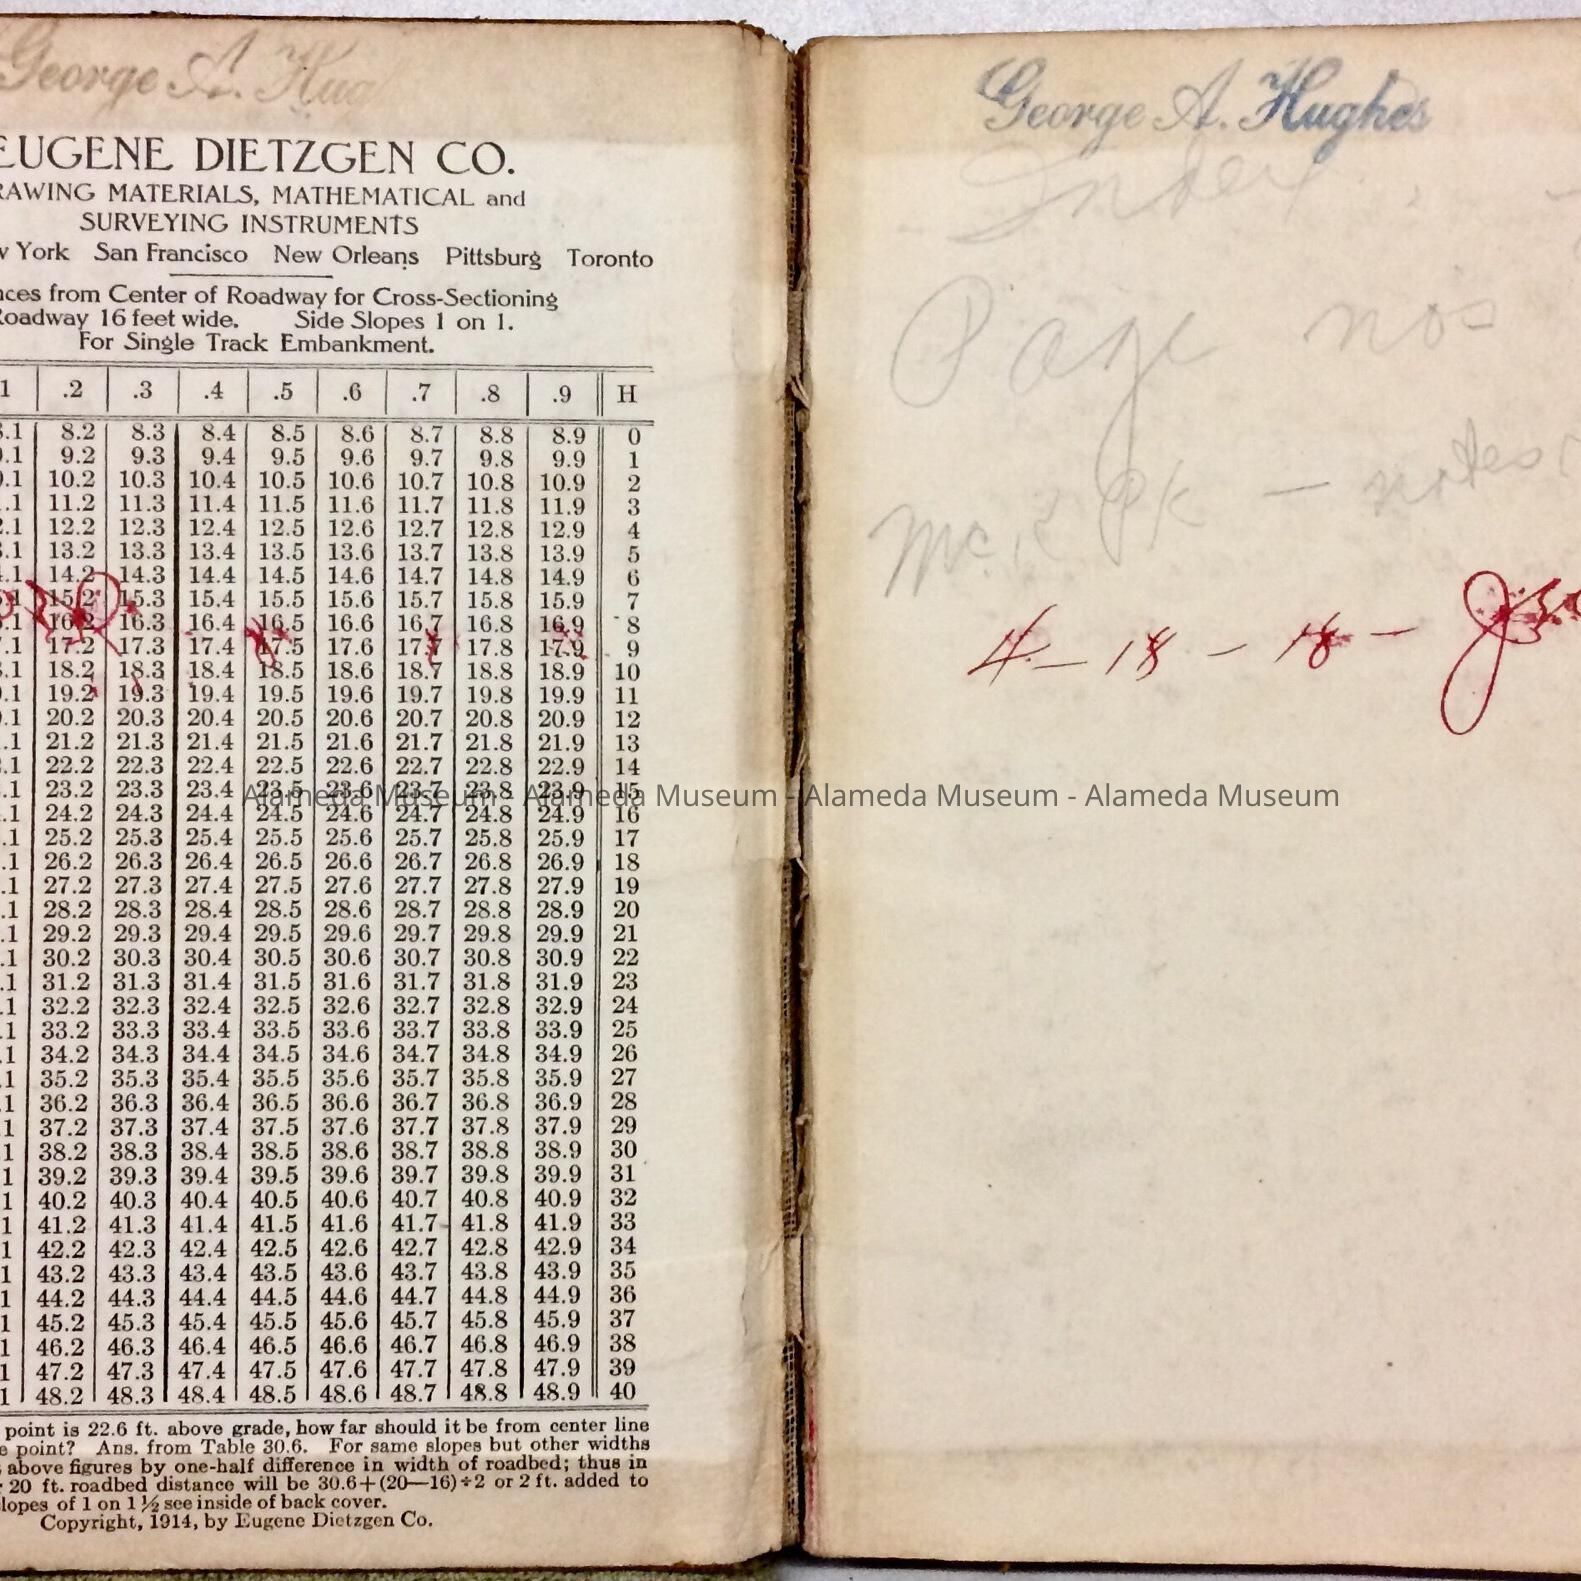 George A. Hug
EUGENE DIETZGEN CO.
RAWING MATERIALS, MATHEMATICAL and
SURVEYING INSTRUMENTS
w York San Francisco New Orleans Pittsburg Toronto
nces from Center of Roadway for Cross-Sectioning
Roadway 16 feet wide. Side Slopes 1 on 1.
For Single Track Embankment.
1 .2 .3 .4 .5 .6 .7 .8 .9 H
8.1 8.2 8.3 8.4 8.5 8.6 8.7 8.8 8.9 0
9.1 9.2 9.3 9.4 9.5 9.6 9.7 9.8 9.9 1
0.1 10.2 10.3 10.4 10.5 10.6 10.7 10.8 10.9 2
.1 11.2 11.3 11.4 11.5 11.6 11.7 11.8 11.9 3
2.1 12.2 12.3 12.4 12.5 12.6 12.7 12.8 12.9 4
3.1 13.2 13.3 13.4 13.5 13.6 13.7 13.8 13.9 5
4.1 14.2 14.3 14.4 14.5 14.6 14.7 14.8 14.9 6
5.1 15.2 15.3 15.4 15.5 15.6 15.7 15.8 15.9 7
.1 16.2 16.3 16.4 16.5 16.6 16.7 16.8 16.9 8
7.1 17.2 17.3 17.4 17.5 17.6 17.7 17.8 17.9 9
8.1 18.2 18.3 18.4 18.5 18.6 18.7 18.8 18.9 10
9.1 19.2 19.3 19.4 19.5 19.6 19.7 19.8 19.9 11
0.1 20.2 20.3 20.4 20.5 20.6 20.7 20.8 20.9 12
.1 21.2 21.3 21.4 21.5 21.6 21.7 21.8 21.9 13
2.1 22.2 22.3 22.4 22.5 22.6 22.7 22.8 22.9 14
.1 23.2 23.3 23.4 23.5 23.6 23.7 23.8 23.9 15
.1 24.2 24.3 24.4 24.5 24.6 24.7 24.8 24.9 16
.1 25.2 25.3 25.4 25.5 25.6 25.7 25.8 25.9 17
.1 26.2 26.3 26.4 26.5 26.6 26.7 26.8 26.9 18
.1 27.2 27.3 27.4 27.5 27.6 27.7 27.8 27.9 19
.1 28.2 28.3 28.4 28.5 28.6 28.7 28.8 28.9 20
.1 29.2 29.3 29.4 29.5 29.6 29.7 29.8 29.9 21
.1 30.2 30.3 30.4 30.5 30.6 30.7 30.8 30.9 22
.1 31.2 31.3 31.4 31.5 31.6 31.7 31.8 31.9 23
.1 32.2 32.3 32.4 32.5 32.6 32.7 32.8 32.9 24
.1 33.2 33.3 33.4 33.5 33.6 33.7 33.8 33.9 25
.1 34.2 34.3 34.4 34.5 34.6 34.7 34.8 34.9 26
.1 35.2 35.3 35.4 35.5 35.6 35.7 35.8 35.9 27
.1 36.2 36.3 36.4 36.5 36.6 36.7 36.8 36.9 28
.1 37.2 37.3 37.4 37.5 37.6 37.7 37.8 37.9 29
.1 38.2 38.3 38.4 38.5 38.6 38.7 38.8 38.9 30
1 39.2 39.3 39.4 39.5 39.6 39.7 39.8 39.9 31
1 40.2 40.3 40.4 40.5 40.6 40.7 40.8 40.9 32
1 41.2 41.3 41.4 41.5 41.6 41.7 41.8 41.9 33
1 42.2 42.3 42.4 42.5 42.6 42.7 42.8 42.9 34
1 43.2 43.3 43.4 43.5 43.6 43.7 43.8 43.9 35
1 44.2 44.3 44.4 44.5 44.6 44.7 44.8 44.9 36
1 45.2 45.3 45.4 45.5 45.6 45.7 45.8 45.9 37
1 46.2 46.3 46.4 46.5 46.6 46.7 46.8 46.9 38
1 47.2 47.3 47.4 47.5 47.6 47.7 47.8 47.9 39
1 48.2 48.3 48.4 48.5 48.6 48.7 48.8 48.9 40
point is 22.6 ft. above grade, how far should it be from center line
e point? Ans. from Table 30.6. For same slopes but other widths
above figures by one-half difference in width of roadbed; thus in
20 ft. roadbed distance will be 30.6+(20—16)÷2 or 2 ft. added to
lopes of 1 on 1½ see inside of back cover.
Copyright, 1914, by Eugene Dietzgen Co.
George A. Hughes
Index
Page nos
Mc.K Pk — notes
4 - 18 - 18 -
Alameda Museum - Alameda Museum - Alameda Museum - Alameda Museum